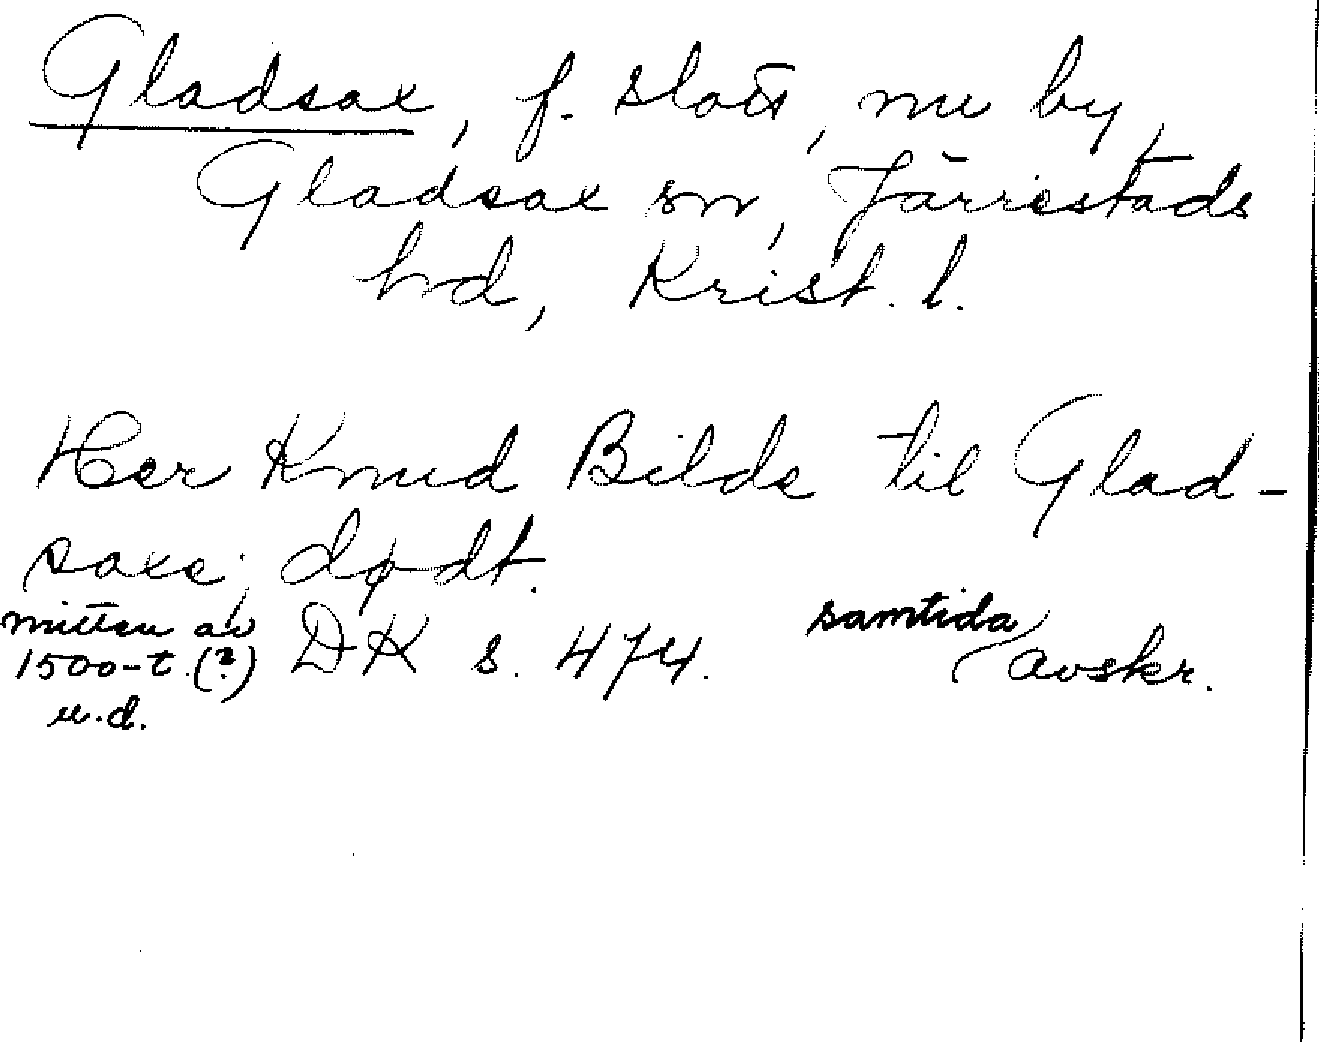 Gladsax, f. slott, nu by,
Gladsax sn, Järrestads
hd, Krist. l.
Her Knud Bilde til Glad-
saxe; dødt.
mitten av
1500-t.(?)
u.d.
DK s. 474.
samtida
avskr.